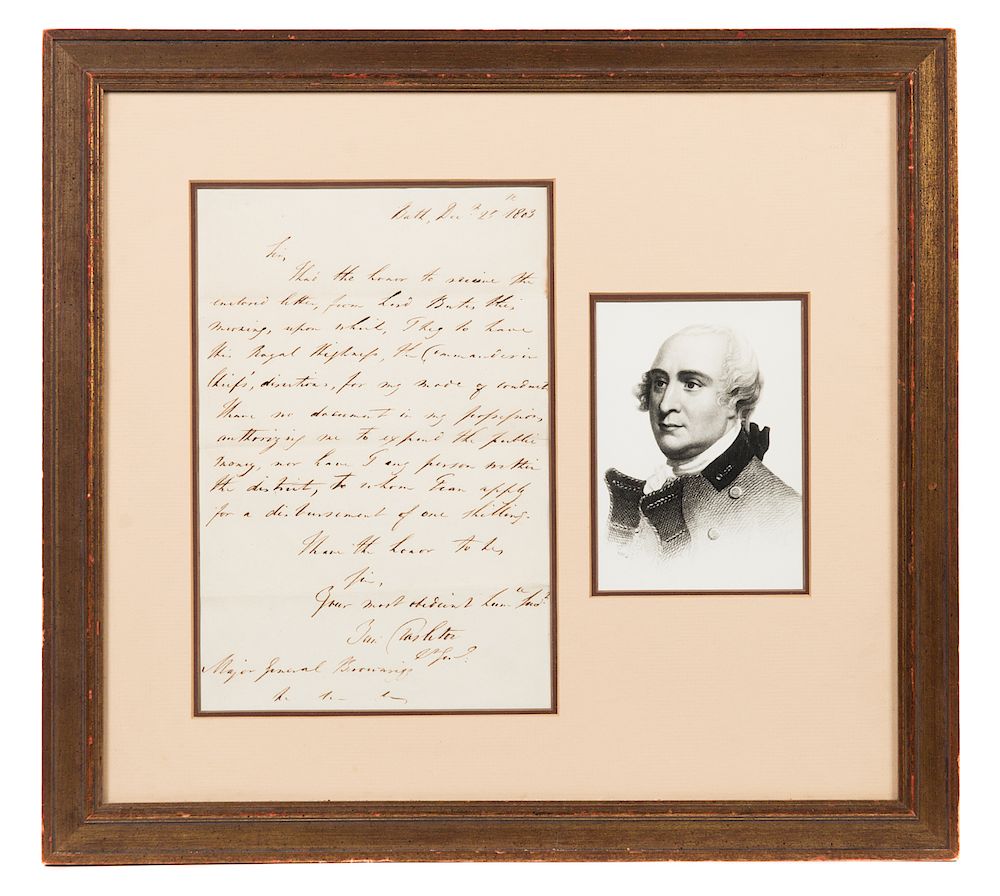 Bath, Decr. 25th 1803
Sir,
I had the honor to receive the
enclosed letter, from Lord Bute, this
morning, upon which, I beg to have
His Royal Highness, the Commander in
Chief's, directions, for my mode of conduct
I have no document in my possession,
authorizing me to expend the public
money, nor have I any person within
the district, to whom I can apply
for a disbursement of one shilling.
I have the honor to be,
Sir,
Your most obedient humle Servt.
Ban: Tarleton
Lt Genl.
Major General Brownrigg